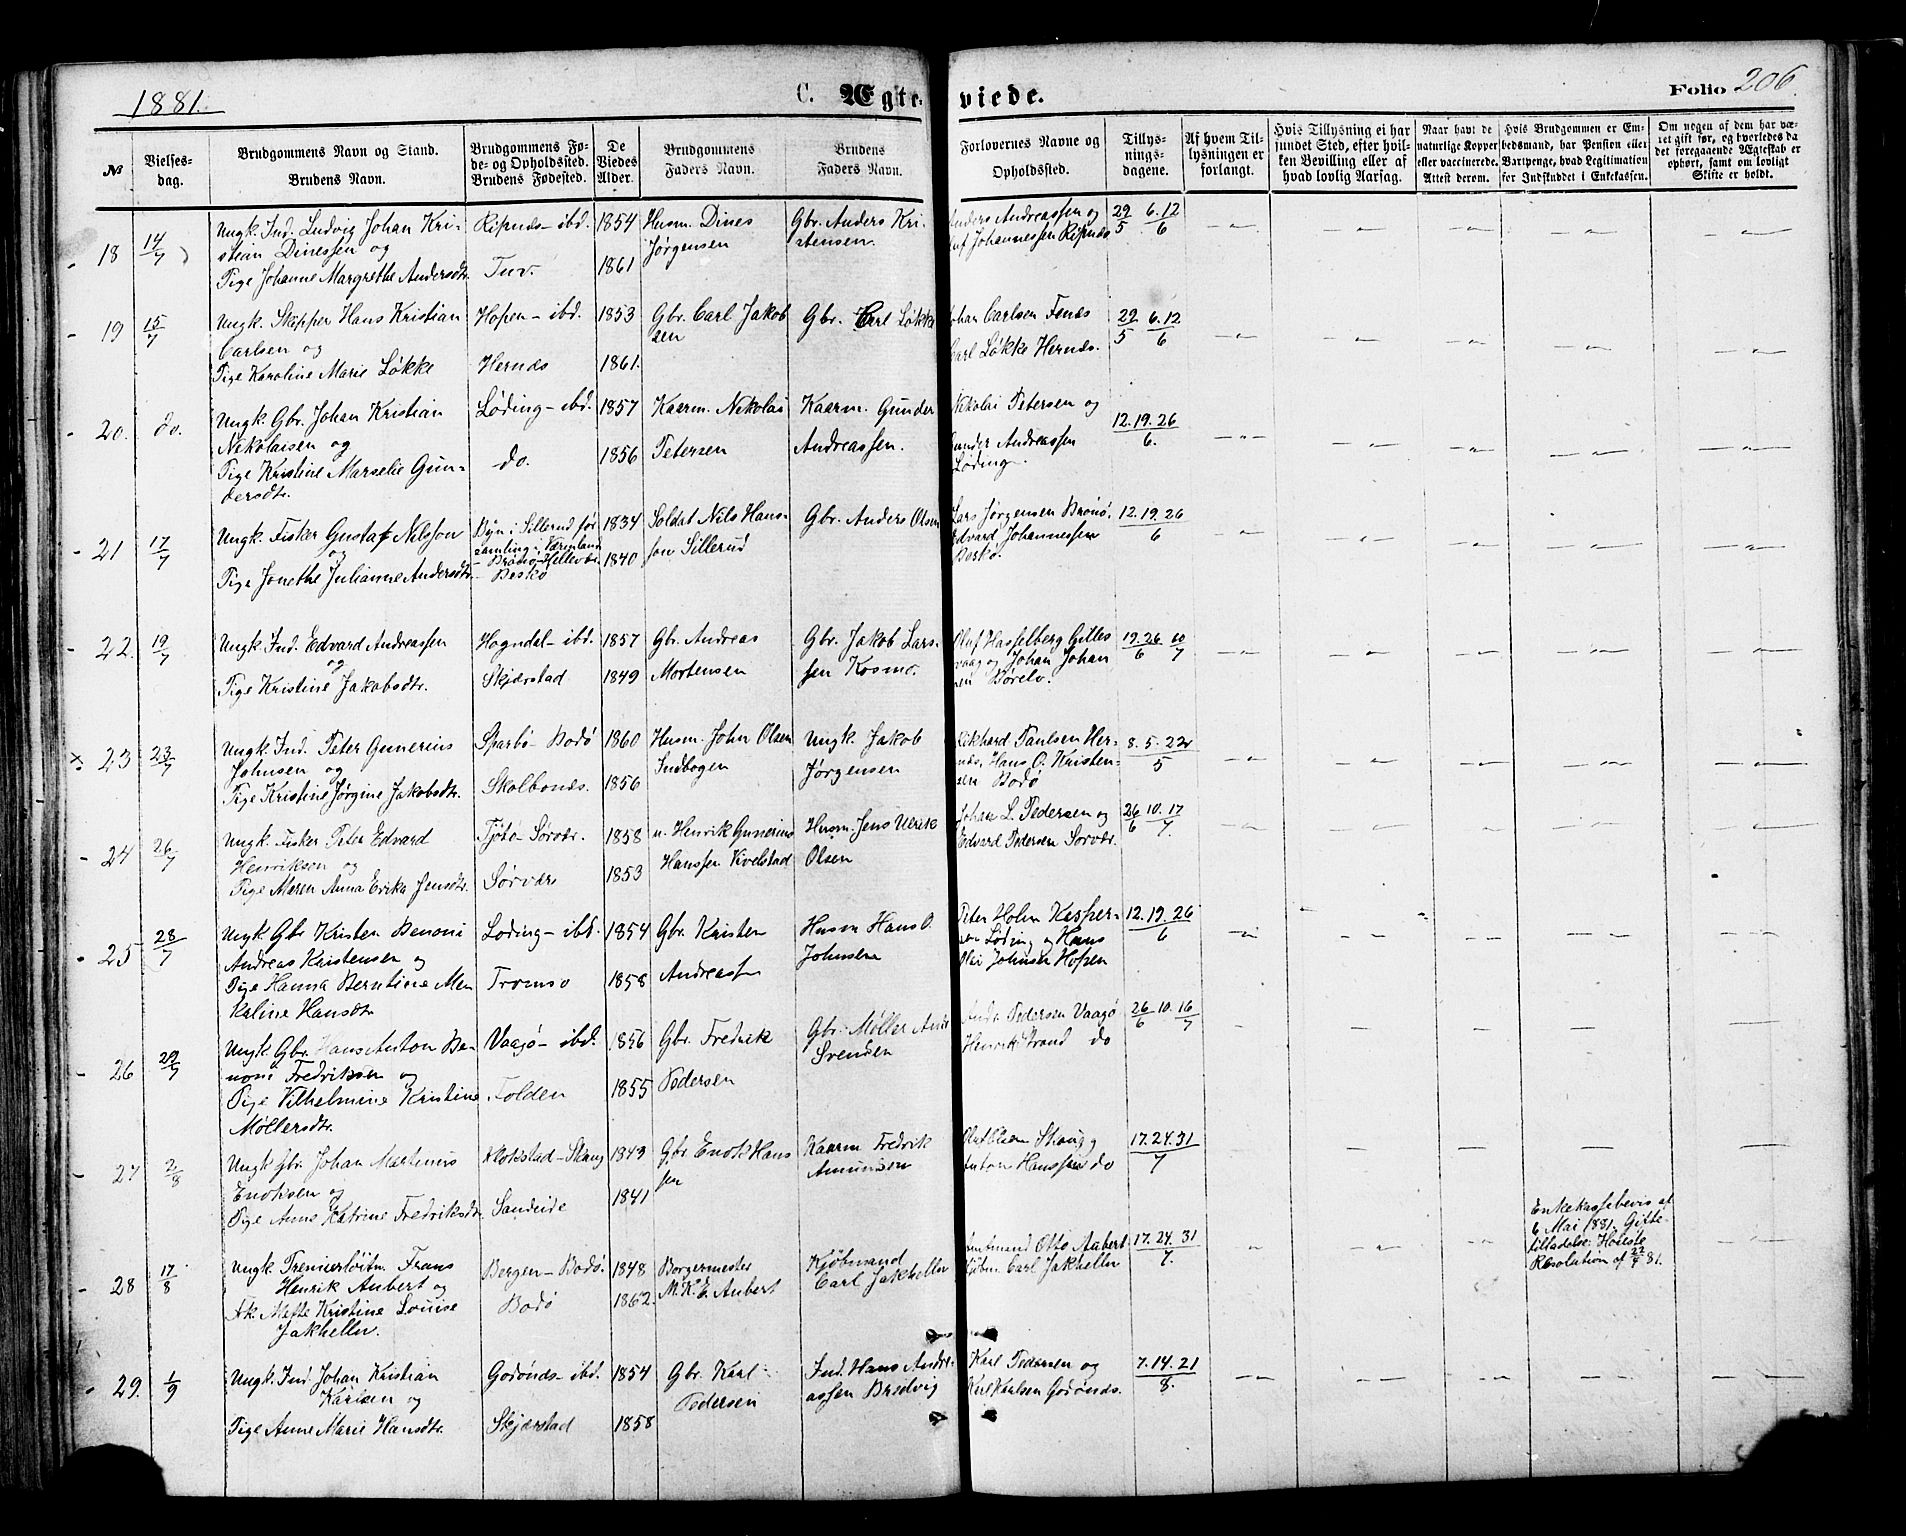 1881.
C. Ægteviede.
Folio 206.
№
Vielses-
dag.
Brudgommens Navn og Stand.
Brudens Navn.
Brudgommens Fø-
de- og Opholdssted.
Brudens Fødested.
De
Viedes
Alder.
Brudgommens
Faders Navn.
Brudens
Faders Navn.
Forlovernes Navne og
Opholdssted.
Tillys-
nings-
dagene.
Af hvem Til-
lysningen er
forlangt.
Hvis Tillysning ei har
fundet Sted, efter hvil-
ken Bevilling eller af
hvad lovlig Aarsag.
Naar havt de
naturlige Kopper
eller vaccinerede.
Attest derom.
Hvis Brudgommen er Em-
bedsmand, har Pension eller
Vartpenge, hvad Legitimation
for Indskuddet i Enkekassen.
Om nogen af dem har væ-
ret gift før, og hvorledes da
det foregaaende Ægteskab er
ophørt, samt om lovligt
Skifte er holdt.
18 14/7 Ungk. Ind. Ludvig Johan Kri-
stian Dinessen og
Pige Johanne Margrethe Andersdtr.
Ripnæs - ibd.
Tuv.
1854
1861
Husm. Dines
Jørgensen
Gbr. Anders Kri-
stensen.
Anders Andreassen og
Johannessen Ripnæs
29/5 6.12/6
19 15/7 Ungk. Skipper Hans Kristian
Carlsen og
Pige Karoline Marie Løkke
Hopen - ibd.
Hernæs
1853
1861.
Gbr. Carl Jakob
sen
Gbr. Carl Løkke
Johan Carlsen Fenæs
Carl Løkke Hernæs.
29/5 6.12/6
20. do. Ungk. Gbr. Johan Kristian
Nikolaisen og
Pige Kristine Marselie Gun-
dersdtr.
Løding - ibd.
do.
1857
1856
Kaarm. Nikolai
Petersen
Kaarm. Gunder
Andreassen.
Nikolai Petersen og
Gunder Andreassen
Løding.
12.19.26/6.
21 17/7 Ungk. Fisker Gustaf Nilsson
og
Pige Jonethe Julianne Andersdtr.
Byn i Sillerud för
samling i Værmland
Beskø
1834
1840
Soldat Nils Hans-
son Sillerud
Gbr. Anders Olsen
Lars Jørgensen Brønø.
Edvard Johannessen
Beskø.
12.19.26/6
22. 19/7 Ungk. Ind. Edvard Andreassen
og
Pige Kristine Jakobsdtr.
Hogndal - ibd.
Skjærstad
1857
1849
Gbr. Andreas
Mortensen
Gbr. Jakob Lars-
sen Kosmo.
Oluf Hasselberg Gilles
vaag og Johan Johan
sen Børelv.
19.26/6 10/7
23 23/7 Ungk. Ind. Peter Gunerius
Johnsen og
Pige Kristine Jørgine Jakobsdtr.
Sparbo - Bodø
Skolbones.
1860
1856
Husm. John Olsen
Indbogen
Ungk. Jakob
Jørgensen
Rikhard Paulsen Her-
næs, Hans O. Kristen-
sen Bodø
8. 5. 22/5
24 26/7 Ungk. Fisker Peter Edvard
Henriksen og
Pige Maren Anna Erika Jensdtr.
Tjøtø - Sørvær.
Sørvær
1858
1853
u. Henrik Gunerius
Hanssen Kvelstad
Husm. Jens Ulrik
Olsen
Johan L. Pedersen og
Edvard Pedersen Sørvær.
26/6 10.17/7
25 28/7 Ungk Gbr Kristen Benoni
Andreas Kristensen og
Pige Hanna Berntine Men
kaline Hansdtr.
Løding - ibd.
Tromsø
1854
1858
Gbr. Kristen
Andreassen
Husm Hans O.
Johnsen
Peter Holm Kasper-
sen Løding og Hans
Olai Johnsen Hopen
12.19.26/6
26 29/7 Ungk. Gbr. Hans Anton Be-
noni Fredriksen og
Pige Vilhelmine Kristine
Møllersdtr.
Vaagø - ibd.
Folden
1856
1855
Gbr. Fredrik
Pedersen
Gbr. Møller
Svendsen
Pedersen Vaagø
Henrik Strand do
26/6 10.16/7
27 2/8 Ungk Gbr. Johan Martinus
Enoksen og
Pige Anne Katrine Fredriksdtr.
Klokstad - Skaug
Sandeide
1843
1841
Gbr. Enok Hans
sen
Kaarm Fredrik
Amundsen
Olsen Skaug
Anton Hanssen do
17.24.31/7
28 17/8 Ungk. Premierløitn. Frans
Henrik Aubert og
Frk. Mette Kristine Louise
Jakhelln.
Bergen - Bodø.
Bodø
1848
1862.
Borgermester
M. K. E. Aubert
Kjøbmand
Carl Jakhelln
Amtmand Otto Aubert
Kjøbm. Carl Jakhelln
17.24.31/7.
Enkekassebevis af
6 Mai 1881. Gifte-
tilladelse: Høieste
Resolution af 22/ 81.
29. 1/9 Ungk. Ind. Johan Kristian
Karlsen og
Pige Anne Marie Hansdtr.
Godønæs - ibd.
Skjærstad
1854
1858
Gbr. Karl
Pedersen
Ind. Hans Andre-
assen Bredvig
Karl Pedersen og
Karl Karlsen Godønæs.
7.14.21/8.